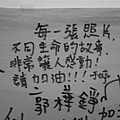 每一張照片
不同生命的故事.
非常讓人感動!
請加油!!!
郭蓽錚
加